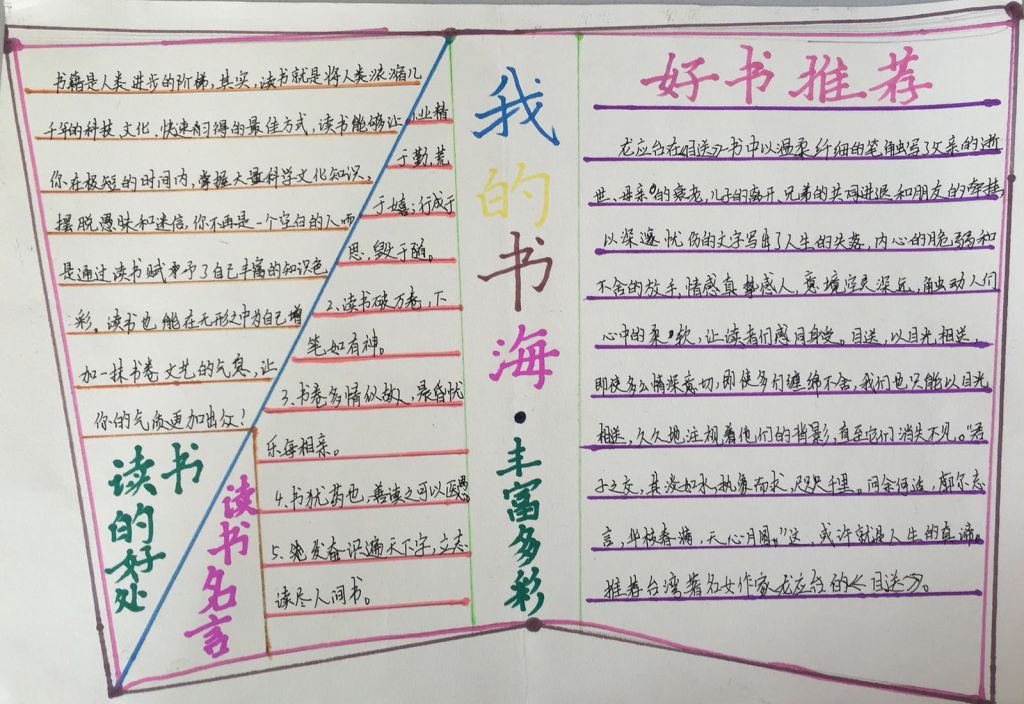 书籍是人类进步的阶梯,其实,读书就是将人类浓缩几
千年的科技、文化、快速习得的最佳方式,读书能够让
你在极短的时间内,掌握大量科学文化知识、
摆脱愚昧和迷信,你不再是一个空白的人而
是通过读书赋予了自己丰富的知识色
彩。读书也能在无形之中为自己增
加一抹书卷文艺的气息,让
你的气质更加出众!
读书
的好处
读书名言
1.业精
于勤,荒
于嬉;行成于
思,毁于随。
2.读书破万卷,下
笔如有神。
3.书卷多情似故人,晨昏忧
乐每相亲。
4.书犹药也,善读之可以医愚
5.发奋识遍天下字,立志
读尽人间书。
我的书海·丰富多彩
好书推荐
龙应台在《目送》一书中以温柔纤细的笔触写了父亲的逝
世、母亲的衰老,儿子的离开、兄弟的共同进退和朋友的牵挂,
以深邃忧伤的文字写出了人生的失落,内心的脆弱和
不舍的放手,情感真挚感人,意境深远,触动人们
心中的柔软,让读者们感同身受。目送,以目光相送,
即使多么情深意切,即使多么缠绵不舍,我们也只能以目光
相送,久久地注视着他们的背影,直至它们消失不见。"君
子之交,其淡如水,执象而求,咫尺千里。问余何适,廓尔忘
言,华枝春满,天心月圆。"这,或许就是人生的真谛。
推荐台湾著名女作家龙应台的《目送》。